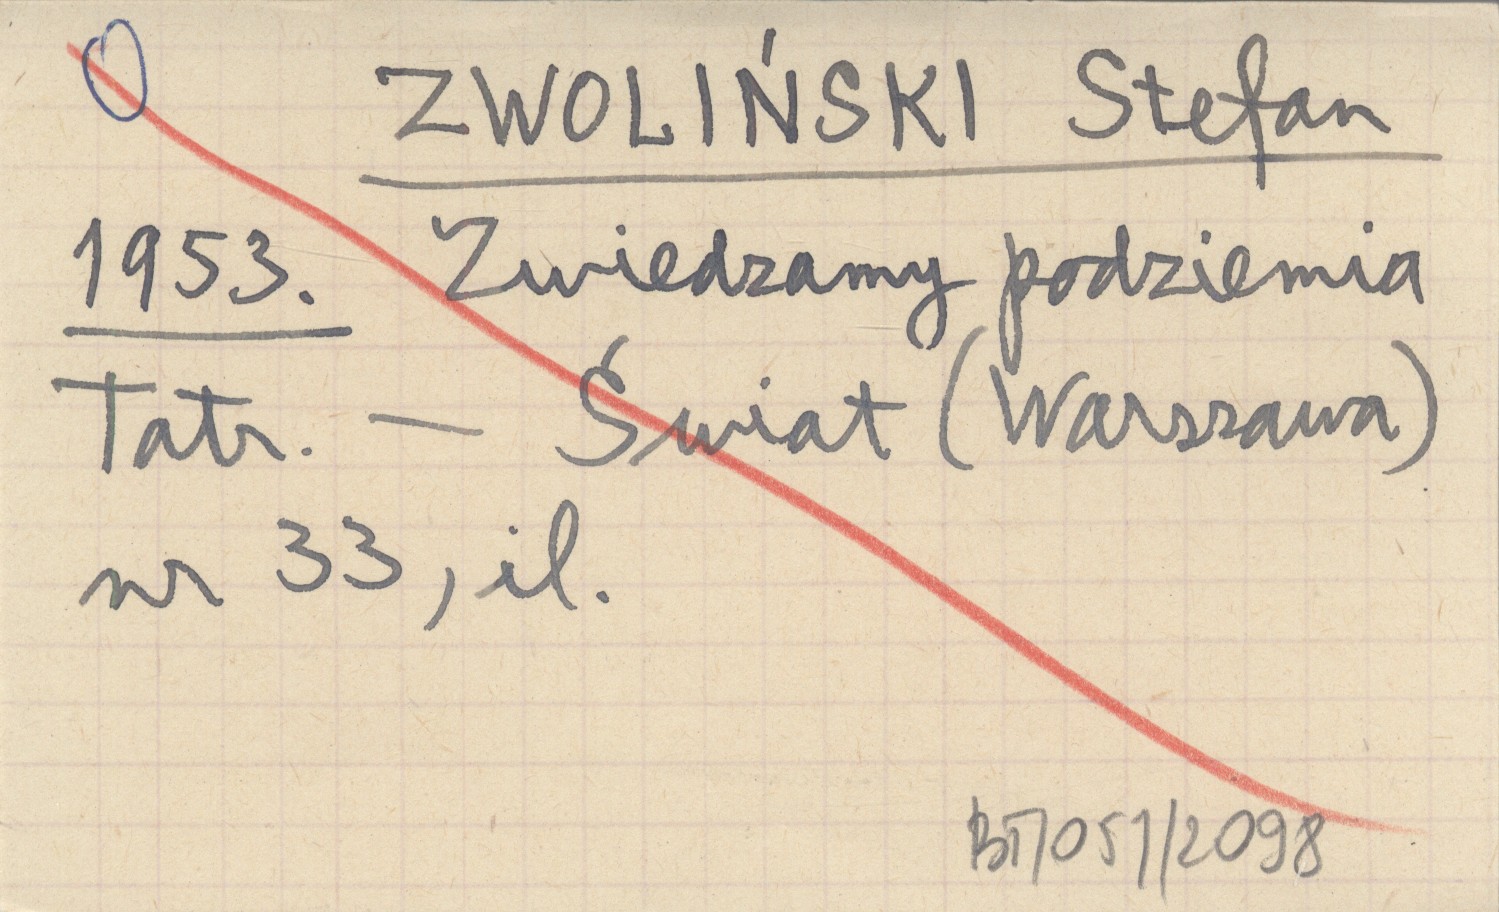 ZWOLIŃSKI Stefan
1953. Zwiedzamy podziemia
Tatr. — Świat (Warszawa)
nr 33, il.
BT/051/2098